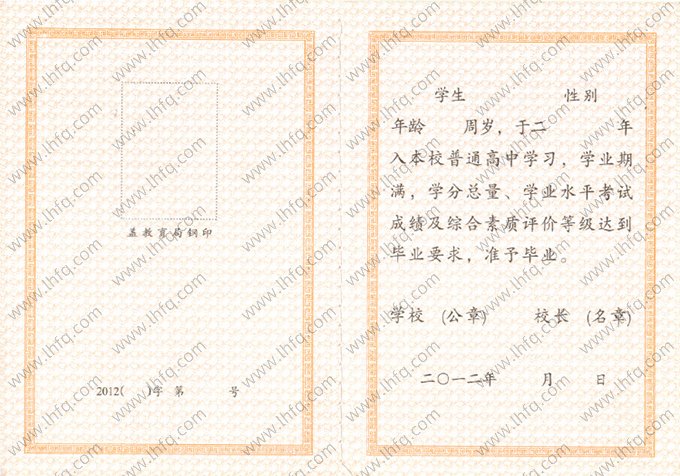 盖教育局钢印
2012( )字 第 号
学生 性别
年龄 周岁，于二 年
入本校普通高中学习，学业期
满，学分总量、学业水平考试
成绩及综合素质评价等级达到
毕业要求，准予毕业。
学校 (公章) 校长 (名章)
二〇一二年 月 日
www.lhfq.com